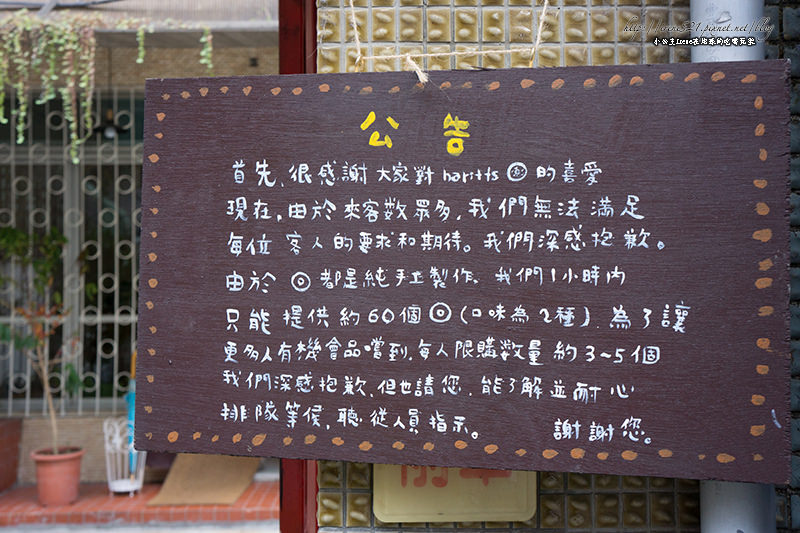 公告
首先、很感謝大家對haritts◎的喜愛
現在,由於來客數眾多,我們無法滿足
每位客人的要求和期待。我們深感抱歉。
由於◎都是純手工製作,我們1小時內
只能提供約60個◎(口味為2種),為了讓
更多人有機會品嚐到,每人限購數量約3~5個
我們深感抱歉,但也請您,能了解並耐心
排隊等候,聽從人員指示。 謝謝您。